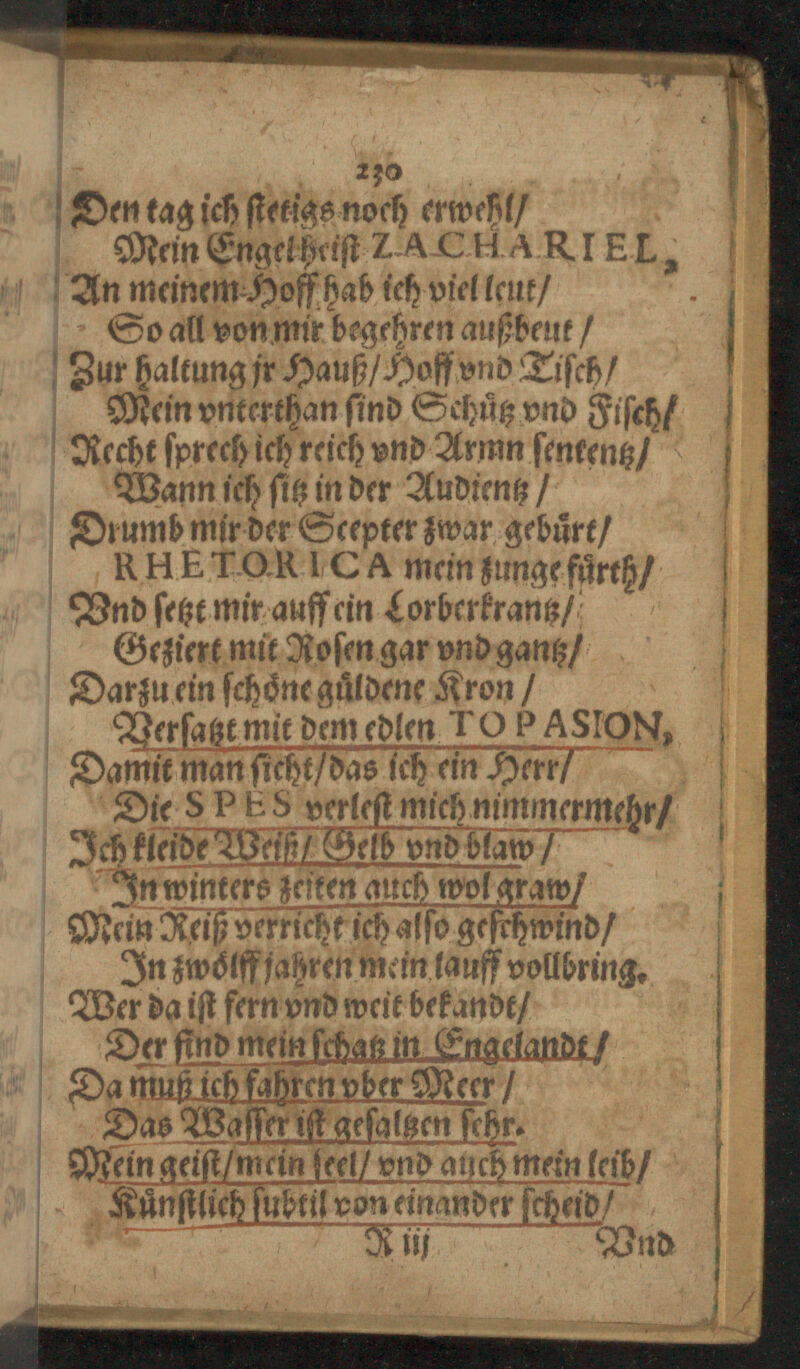 230
Den tag ich ſtetigs noch erwehl/
Mein Engel heiſt ZACHARIEL,
An meinem Hoff hab ich viel leut/
So all von mir begehren außbeut /
Zur haltung jr Hauß/ Hoff vnd Tiſch/
Mein vnterthan ſind Schuͤtz vnd Fiſch/
Recht ſprech ich reich vnd Armn ſententz/
Wann ich ſitz in der Audientz /
Drumb mir der Scepter zwar gebuͤrt/
RHETORICA mein zunge fuͤrth/
Vnd ſetzt mir auff ein Lorberkrantz/
Geziert mit Roſen gar vnd gantz/
Darzu ein ſchoͤne guͤldene Kron /
Verſatzt mit dem edlen TOPASION,
Damit man ſicht/ das ich ein Herr/
Die SPES verleſt mich nimmermehr/
Ich kleide Weiß/ Gelb vnd blaw /
In winters zeiten auch wol graw/
Mein Reiß verricht ich alſo geſchwind/
In zwoͤlff jahren mein lauff vollbring.
Wer da iſt fern vnd weit bekandt/
Der find mein ſchatz in Engelandt /
Da muß ich fahren vber Meer /
Das Waſſer iſt geſaltzen ſehr.
Mein geiſt/ mein ſeel/ vnd auch mein leib/
Kuͤnſtlich ſubtil von einander ſcheid/
R iij Vnd